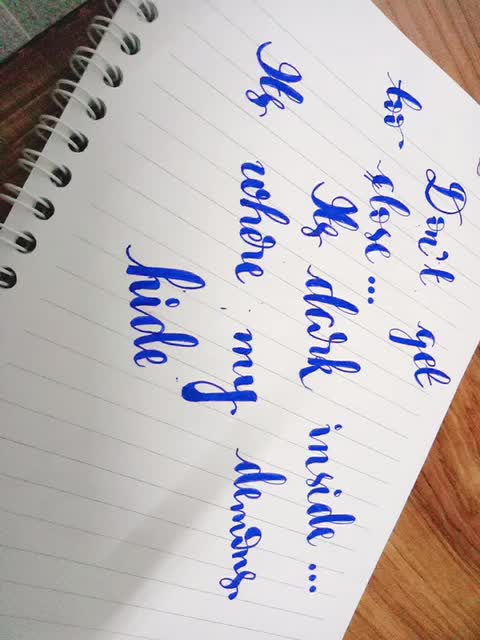 Don't get
too close...
Its dark inside...
Its where my demons
hide